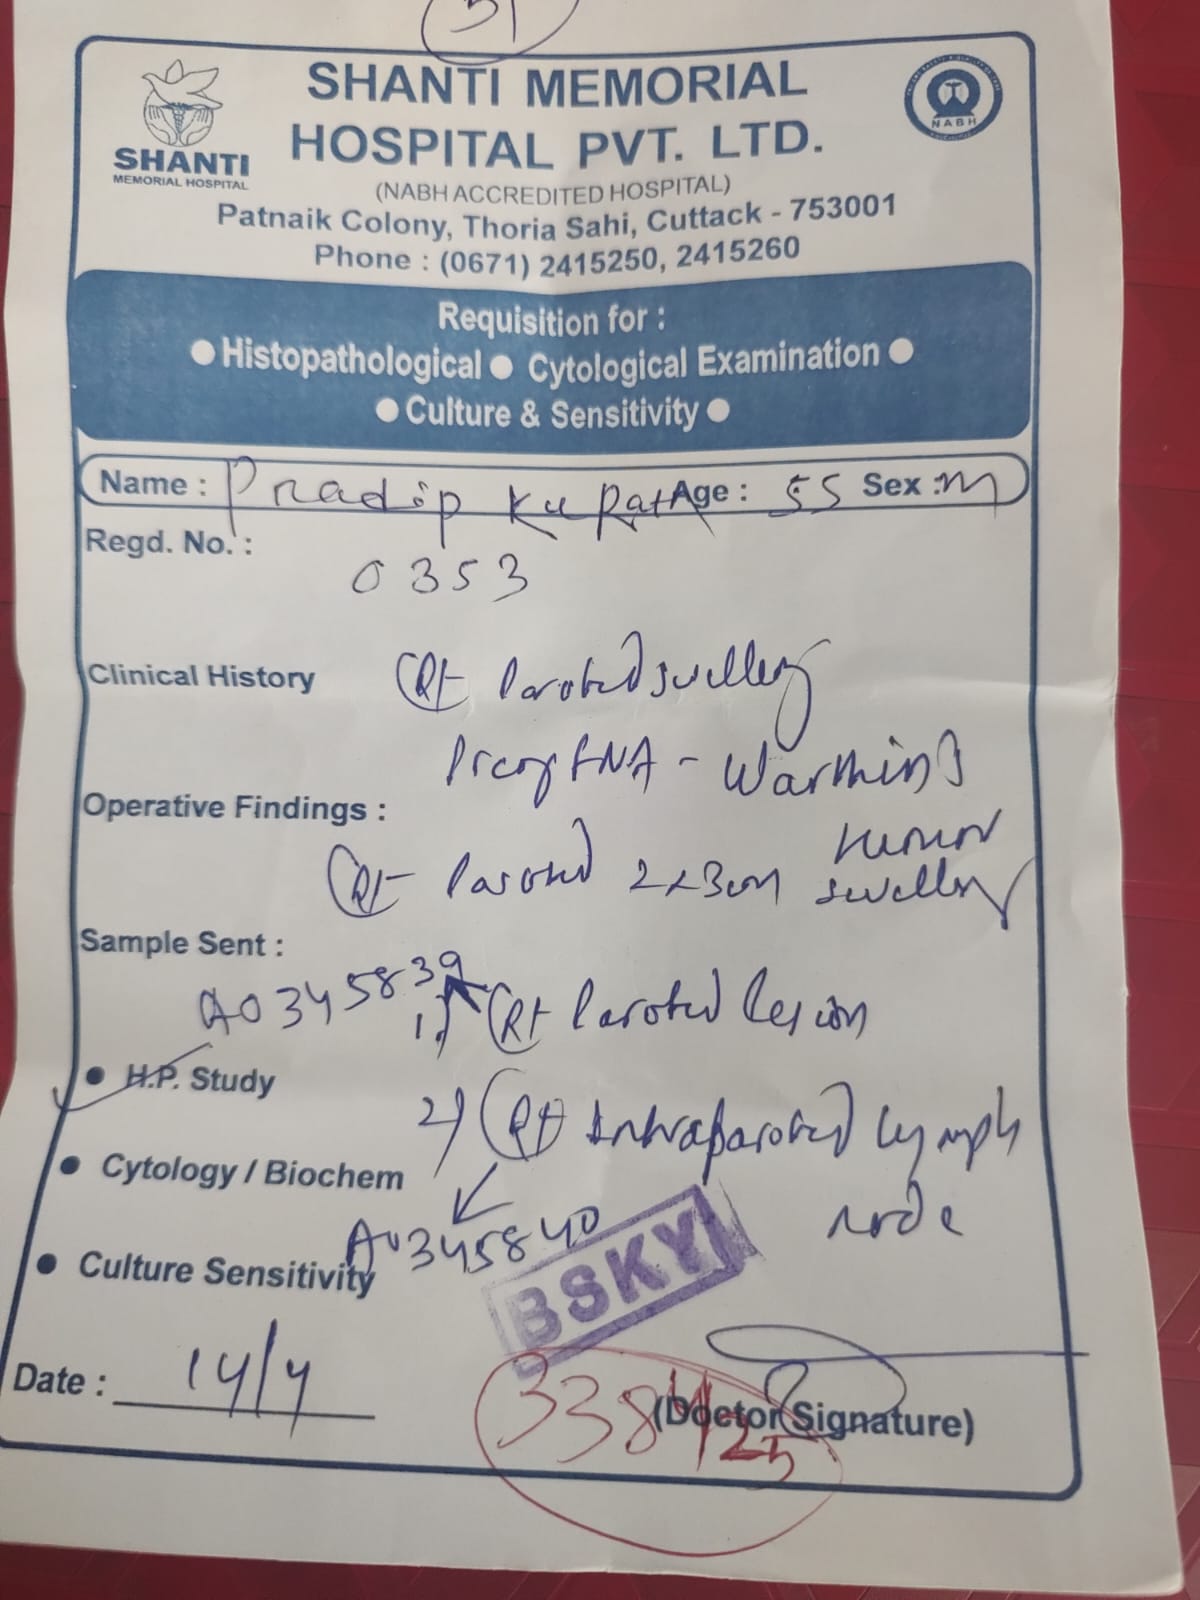 31
SHANTI MEMORIAL
HOSPITAL PVT. LTD.
SHANTI
MEMORIAL HOSPITAL
NABH
(NABH ACCREDITED HOSPITAL)
Patnaik Colony, Thoria Sahi, Cuttack - 753001
Phone : (0671) 2415250, 2415260
Requisition for :
● Histopathological ● Cytological Examination ●
● Culture & Sensitivity ●
Name : Pradip Ku Rath Age : 55 Sex : M
Regd. No. :
0353
Clinical History Rt Parotid swelling
FNA - Warthin's
tumor
Operative Findings :
Rt Parotid 2x3cm swelling
Sample Sent :
A0345839
1) Rt Parotid lesion
● H.P. Study
2) Rt Intraparotid lymph
node
● Cytology / Biochem
A0345840
● Culture Sensitivity
BSKY
Date : 14/4
(Doctor Signature)
3384/25